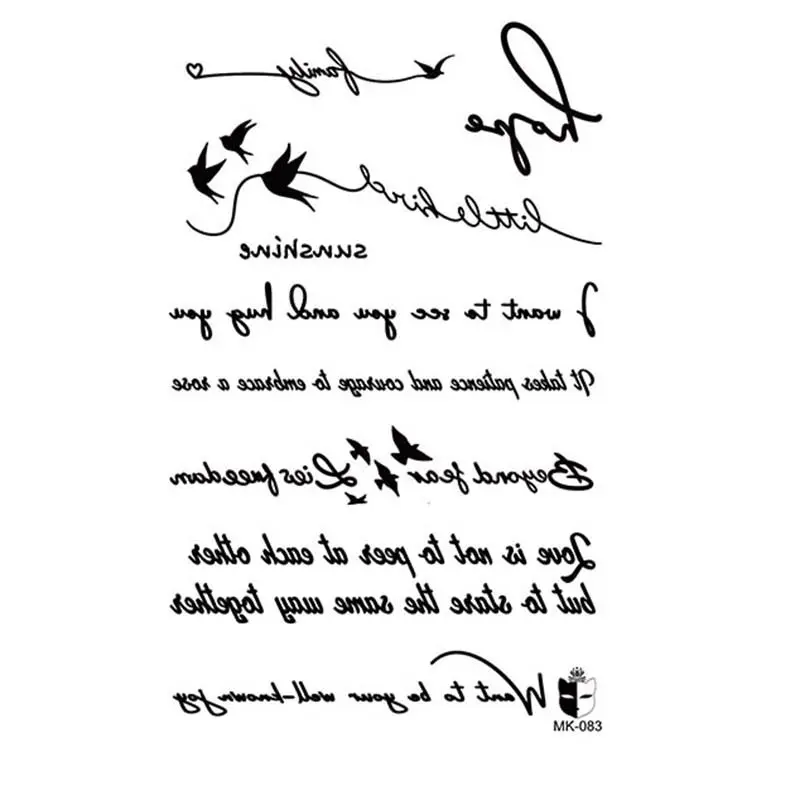 family
hope
little bird
sunshine
I want to see you and hug you
It takes patience and courage to embrace a rose
Beyond fear Lies freedom
Love is not to peer at each other
but to stare the same way together
Want to be your well-known joy
MK-083